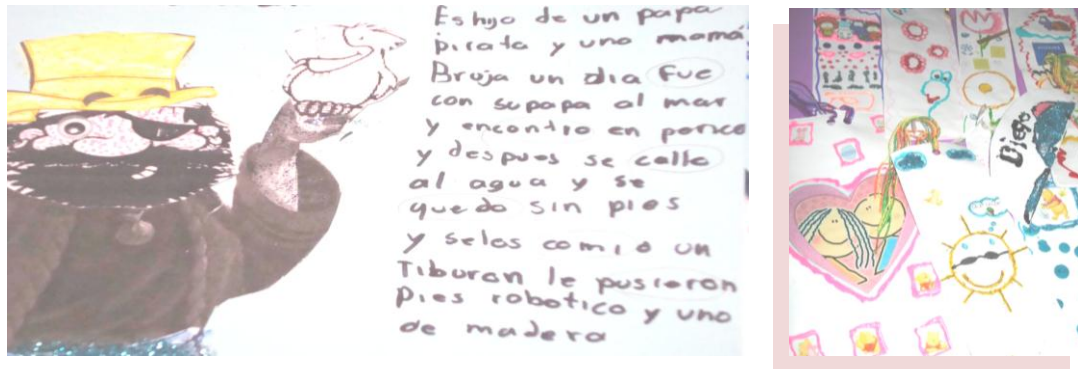 Es hijo de un papa
pirata y una mamá
Bruja un dia fue
con su papa al mar
y encontro en perico
y despues se callo
al agua y se
quedo sin pies
y selos comio un
Tiburon le pusieron
pies robotico y uno
de madera
Diego